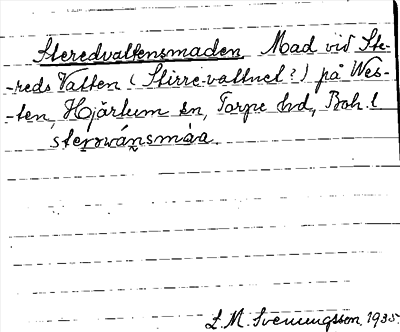 Steredvattensmaden, Mad vid Ste-
-reds Vatten (Stirre-vattnet?) på Wes-
-ten, Hjärtum sn, Torpe hd, Boh. l
sterswánsmáa.
L. M. Svenungsson, 1935.